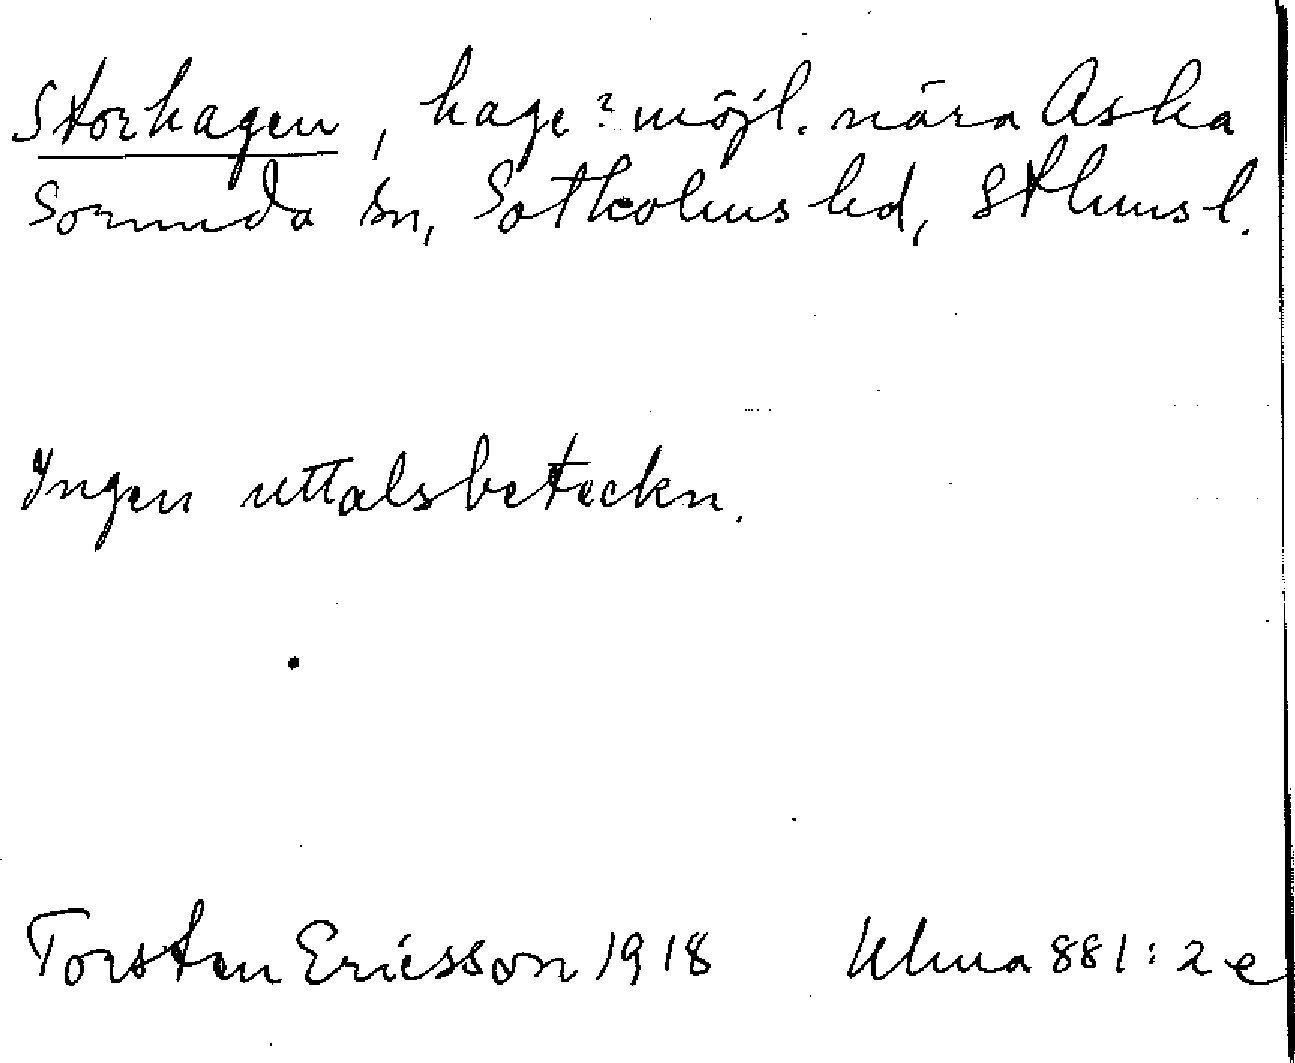 Storhagen, hage? möjl. nära Aska
Sorunda sn, Sotholms hd, Sthms l.
Ingen uttalsbeteckn.
Torsten Ericsson 1918 Ulma 881:2e